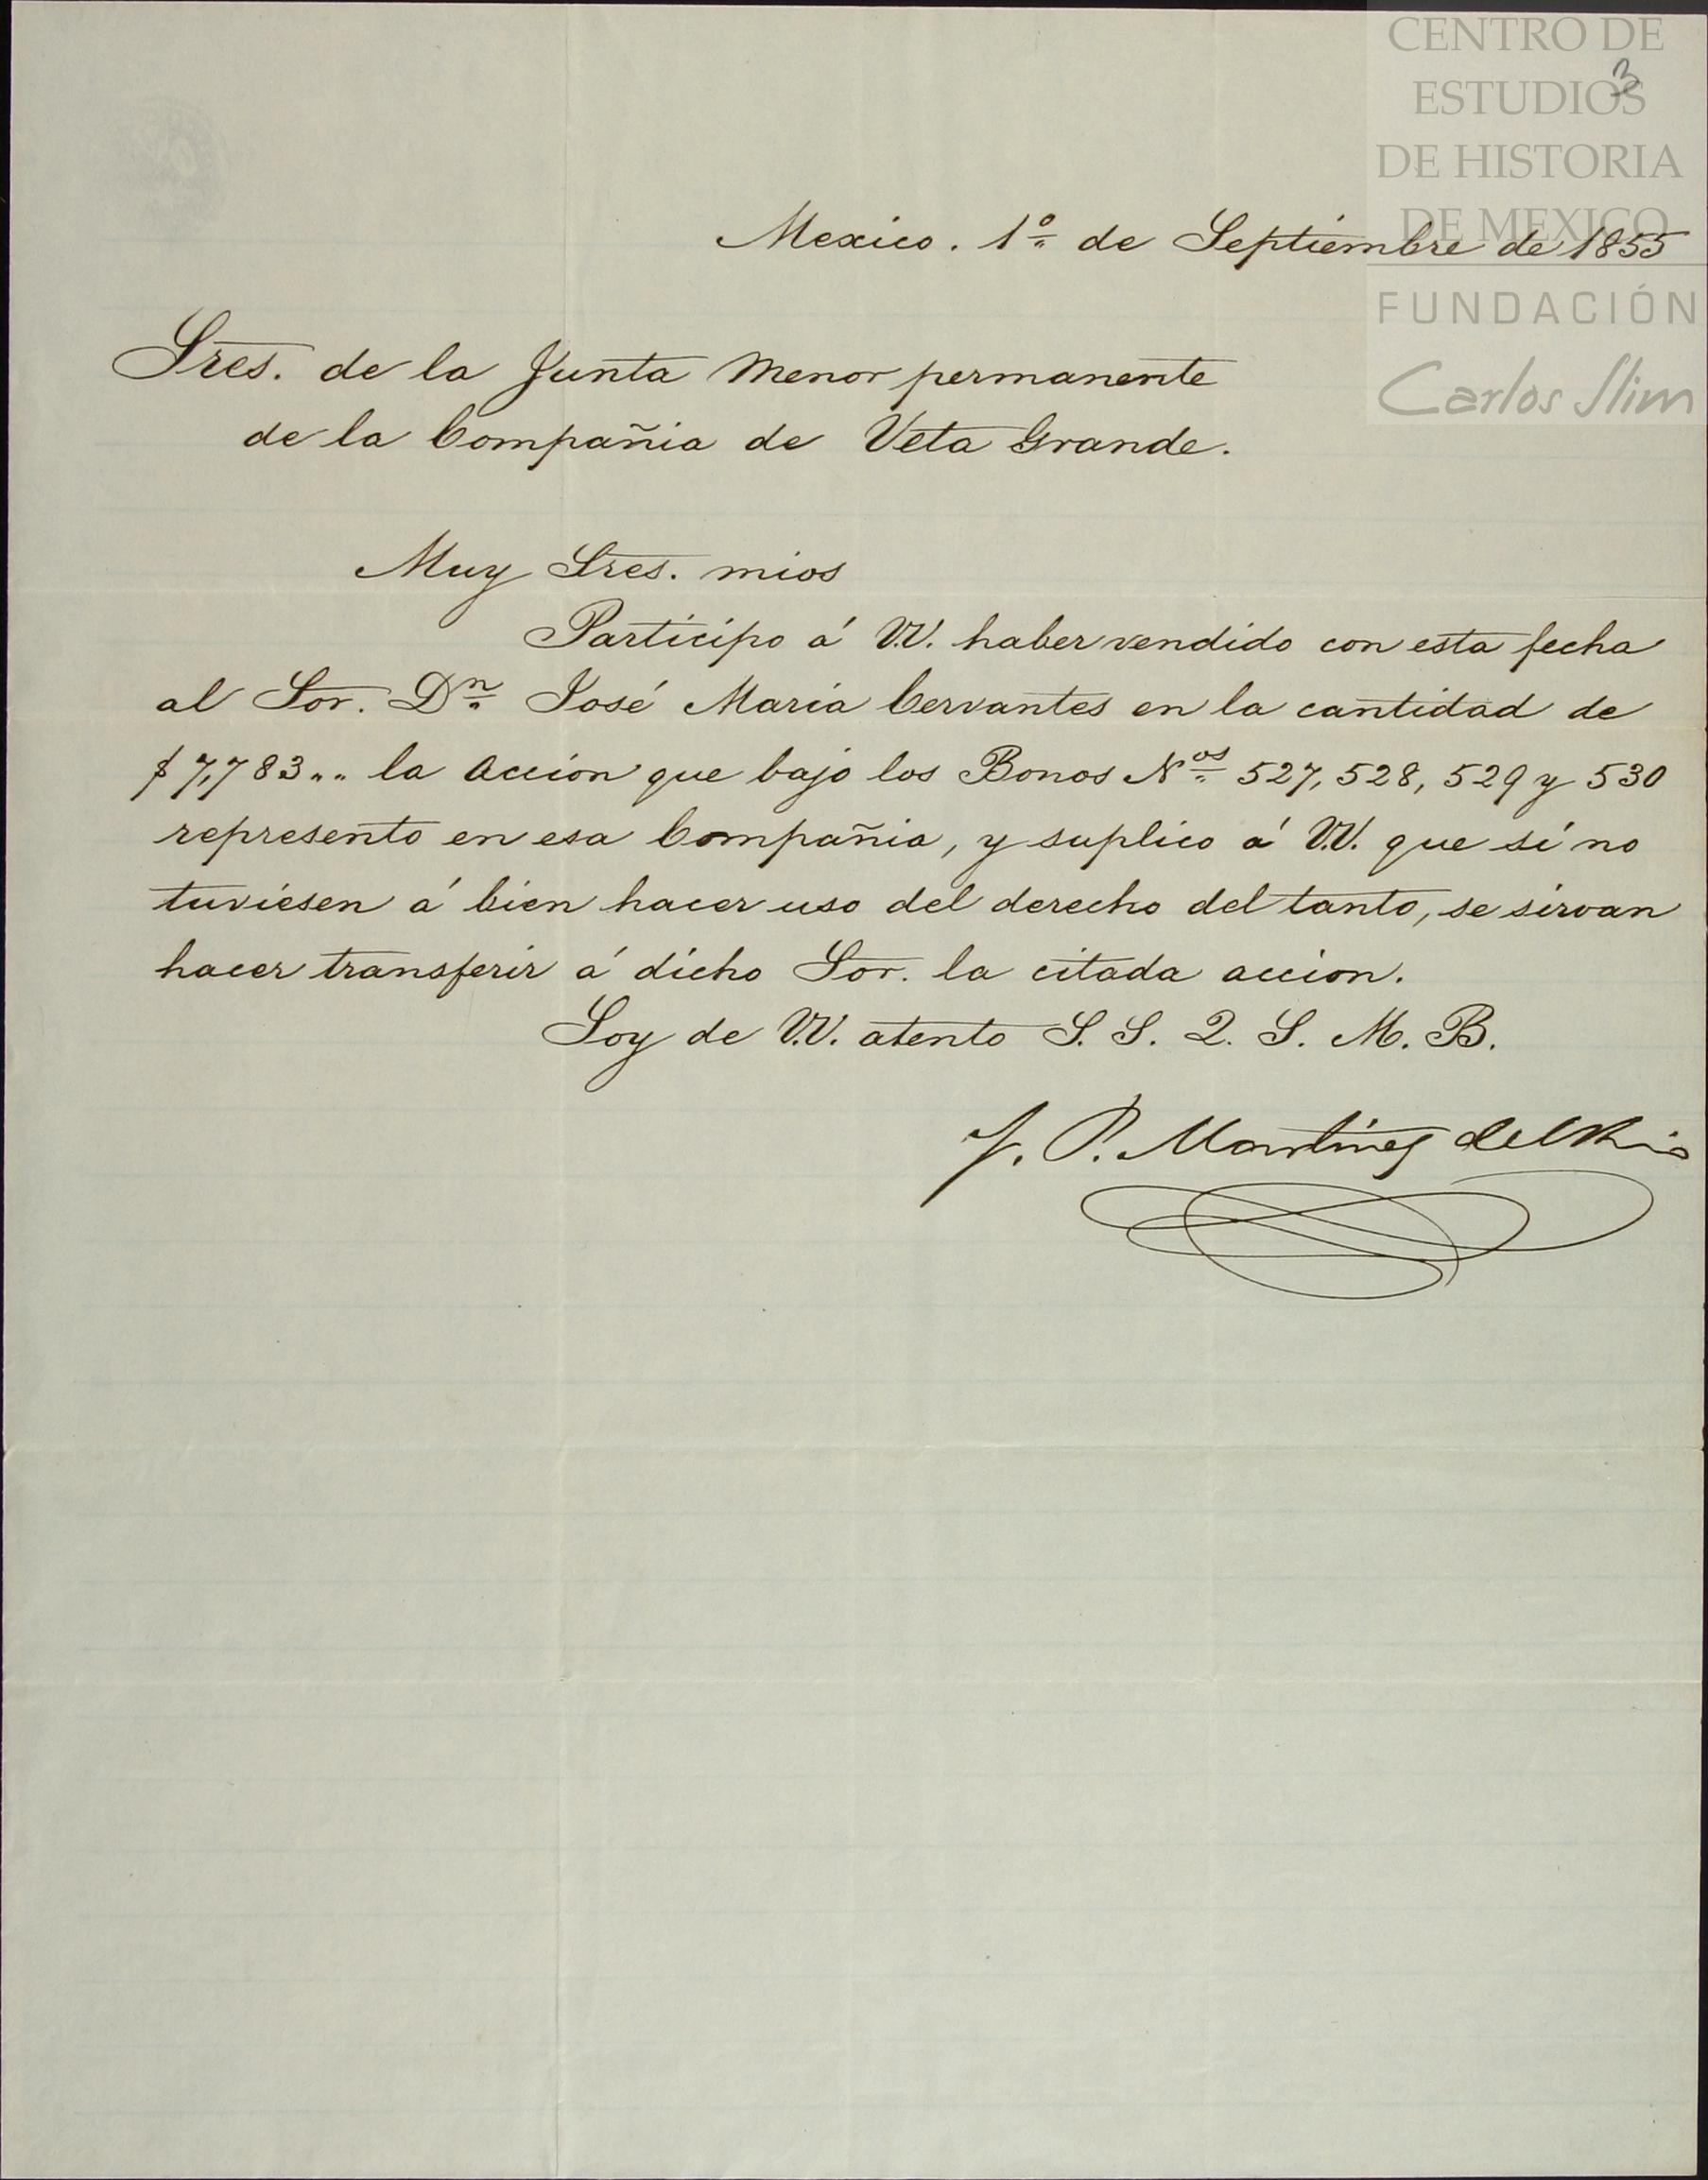 CENTRO DE
ESTUDIOS
DE HISTORIA
DE MEXICO
FUNDACIÓN
Carlos Slim
3
Mexico. 1º de Septiembre de 1855
Sres. de la Junta Menor permanente
de la Compañia de Veta Grande.
Muy Sres. mios
Participo á V.V. haber vendido con esta fecha
al Sor. Dn. José Maria Cervantes en la cantidad de
$7,783.,. la Accion que bajo los Bonos Nos. 527, 528, 529 y 530
represento en esa Compañia, y suplico á V.V. que si no
tuviesen á bien hacer uso del derecho del tanto, se sirvan
hacer transferir á dicho Sor. la citada accion.
Soy de V.V. atento S. S. Q. S. M. B.
J. P. Martinez del Rio